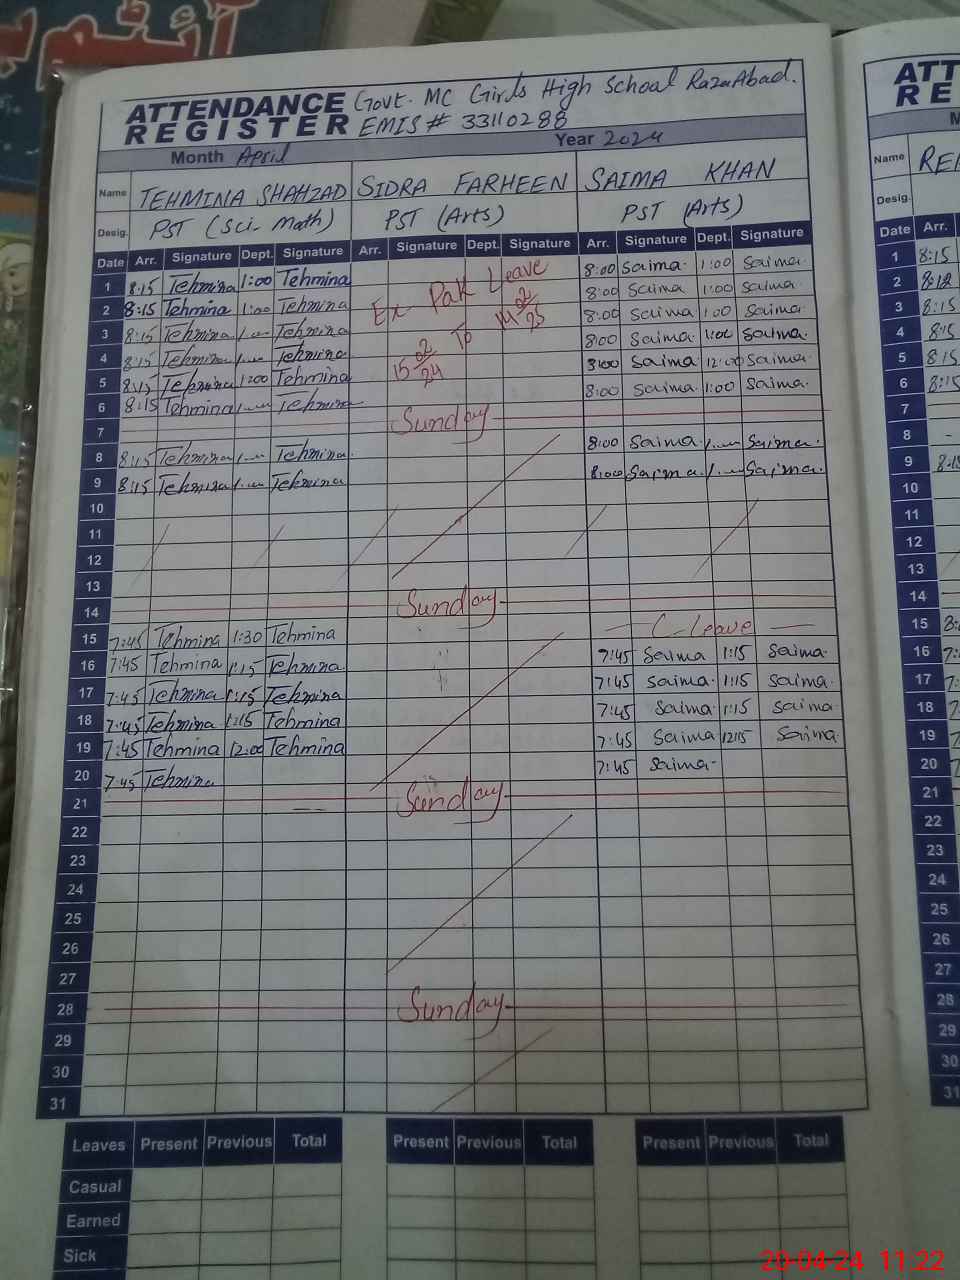 ATTENDANCE REGISTER
Govt. MC Girls High School RazaAbad.
EMIS # 33110288
Month April Year 2024
Name TEHMINA SHAHZAD SIDRA FARHEEN SAIMA KHAN
Desig. PST (Sci-Math) PST (Arts) PST (Arts)
Date Arr. Signature Dept. Signature Arr. Signature Dept. Signature Arr. Signature Dept. Signature
1 8:15 Tehmina 1:00 Tehmina Ex Pak Leave 8:00 Saima 1:00 Saima
2 8:15 Tehmina 1:00 Tehmina 8:00 Saima 1:00 Saima
3 8:15 Tehmina Tehmina 15 02/24 To 14 02/25 8:00 Saima 1:00 Saima
4 8:15 Tehmina Tehmina 8:00 Saima 1:00 Saima
5 8:15 Tehmina 1:00 Tehmina 8:00 Saima 12:00 Saima
6 8:15 Tehmina Tehmina 8:00 Saima 1:00 Saima
7 Sunday
8 8:15 Tehmina Tehmina 8:00 Saima Saima
9 8:15 Tehmina Tehmina 8:00 Saima Saima
10
11
12
13
14 Sunday
15 7:45 Tehmina 1:30 Tehmina C-Leave
16 7:45 Tehmina 1:15 Tehmina 7:45 Saima 1:15 Saima
17 7:45 Tehmina 1:15 Tehmina 7:45 Saima 1:15 Saima
18 7:45 Tehmina 1:15 Tehmina 7:45 Saima 1:15 Saima
19 7:45 Tehmina 12:00 Tehmina 7:45 Saima 12:15 Saima
20 7:45 Tehmina 7:45 Saima
21 Sunday
22
23
24
25
26
27
28 Sunday
29
30
31
Leaves Present Previous Total Present Previous Total Present Previous Total
Casual
Earned
Sick
Name
Desig.
Date Arr.
1 8:15
2 8:12
3 8:15
4 8:15
5 8:15
6 8:15
7
8 -
9
10
11
12
13
14
15
16
17
18
19
20
21
22
23
24
25
26
27
28
29
30
31
20-04-24 11:22